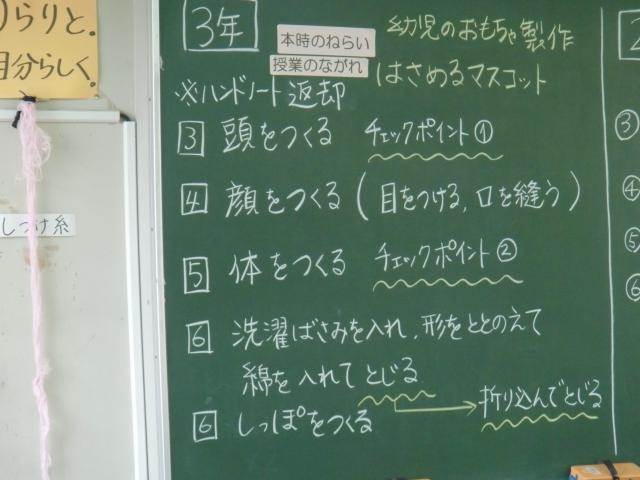 らりと。
自分らしく。
しつけ糸
3年
本時のねらい
授業のながれ
幼児のおもちゃ製作
はさめるマスコット
※ハンドノート返却
3 頭をつくる チェックポイント①
4 顔をつくる(目をつける、口を縫う)
5 体をつくる チェックポイント②
6 洗濯ばさみを入れ、形をととのえて
綿を入れてとじる
→折り込んでとじる
6 しっぽをつくる
③
④
⑤
⑥